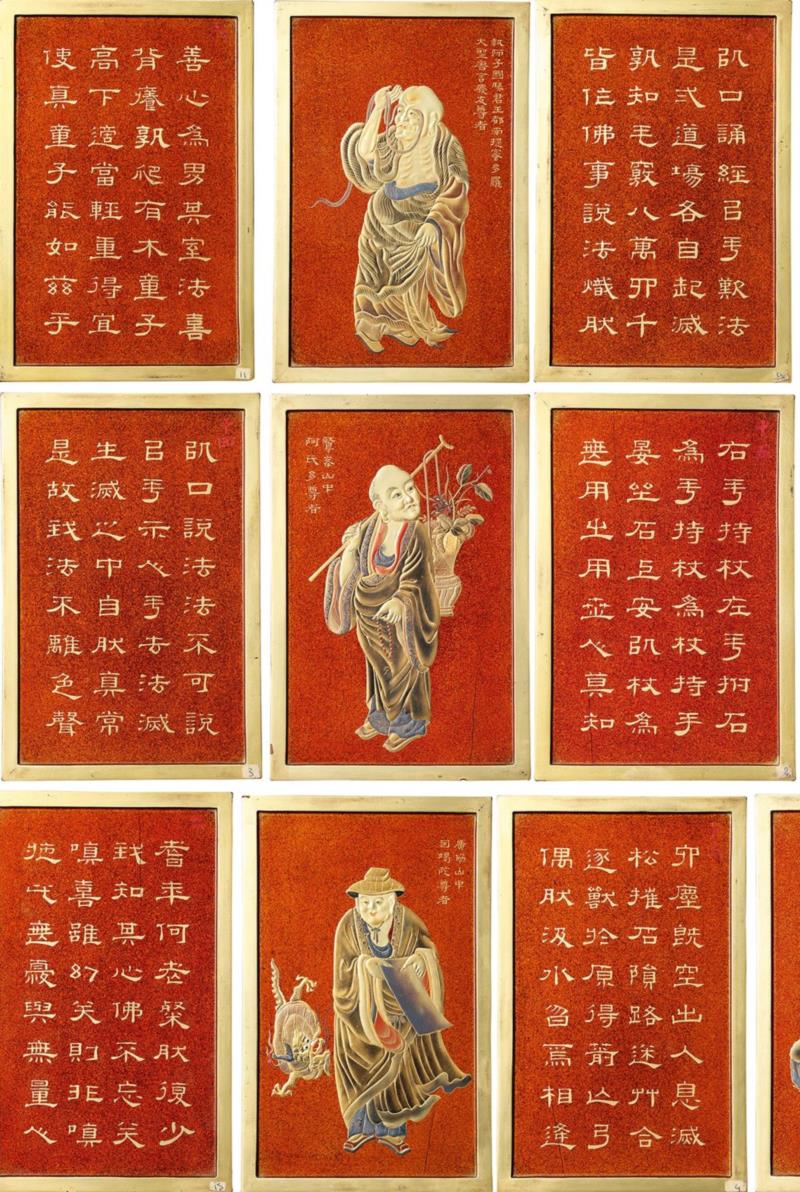 以口誦經以手歎法
是式道場各自起滅
孰知毛竅八萬四千
皆作佛事說法熾然
執師子國勝軍王都南提蜜多羅
大聖唐言慶友尊者
善心為男其室法喜
背癢孰爬有木童子
高下適當輕重得宜
使真童子能如茲乎
11
右手持杖左手拊石
為手持杖為杖持手
晏坐石上安以杖為
無用之用世人莫知
2
鷲峯山中
阿氏多尊者
以口說法法不可說
以手示人手去法滅
生滅之中自然真常
是故我法不離色聲
3
六塵既空出入息滅
松摧石隕路迷艸合
逐獸於原得箭亡弓
偶然汲水忽焉相逢
4
廣脇山中
因揭陀尊者
耆年何老粲然復少
我知其心佛不忘笑
嗔喜雖幻笑則非嗔
施此無憂與無量人